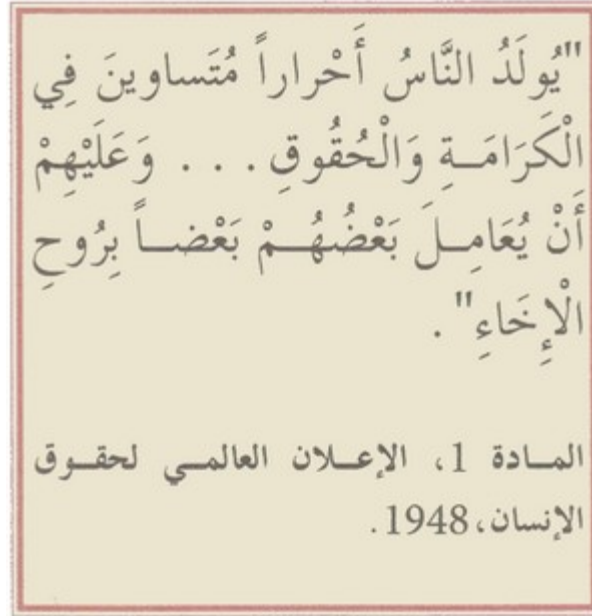 "يُولَدُ النَّاسُ أَحْراراً مُتَساوينَ فِي
الْكَرَامَـةِ وَالْحُقُوقِ . . . وَعَلَيْهِمْ
أَنْ يُعَامِـلَ بَعْضُهُـمْ بَعْضـاً بِرُوحِ
الْإِخَاءِ" .
المـادة 1، الإعـلان العالمـي لحقـوق
الإنسان، 1948.